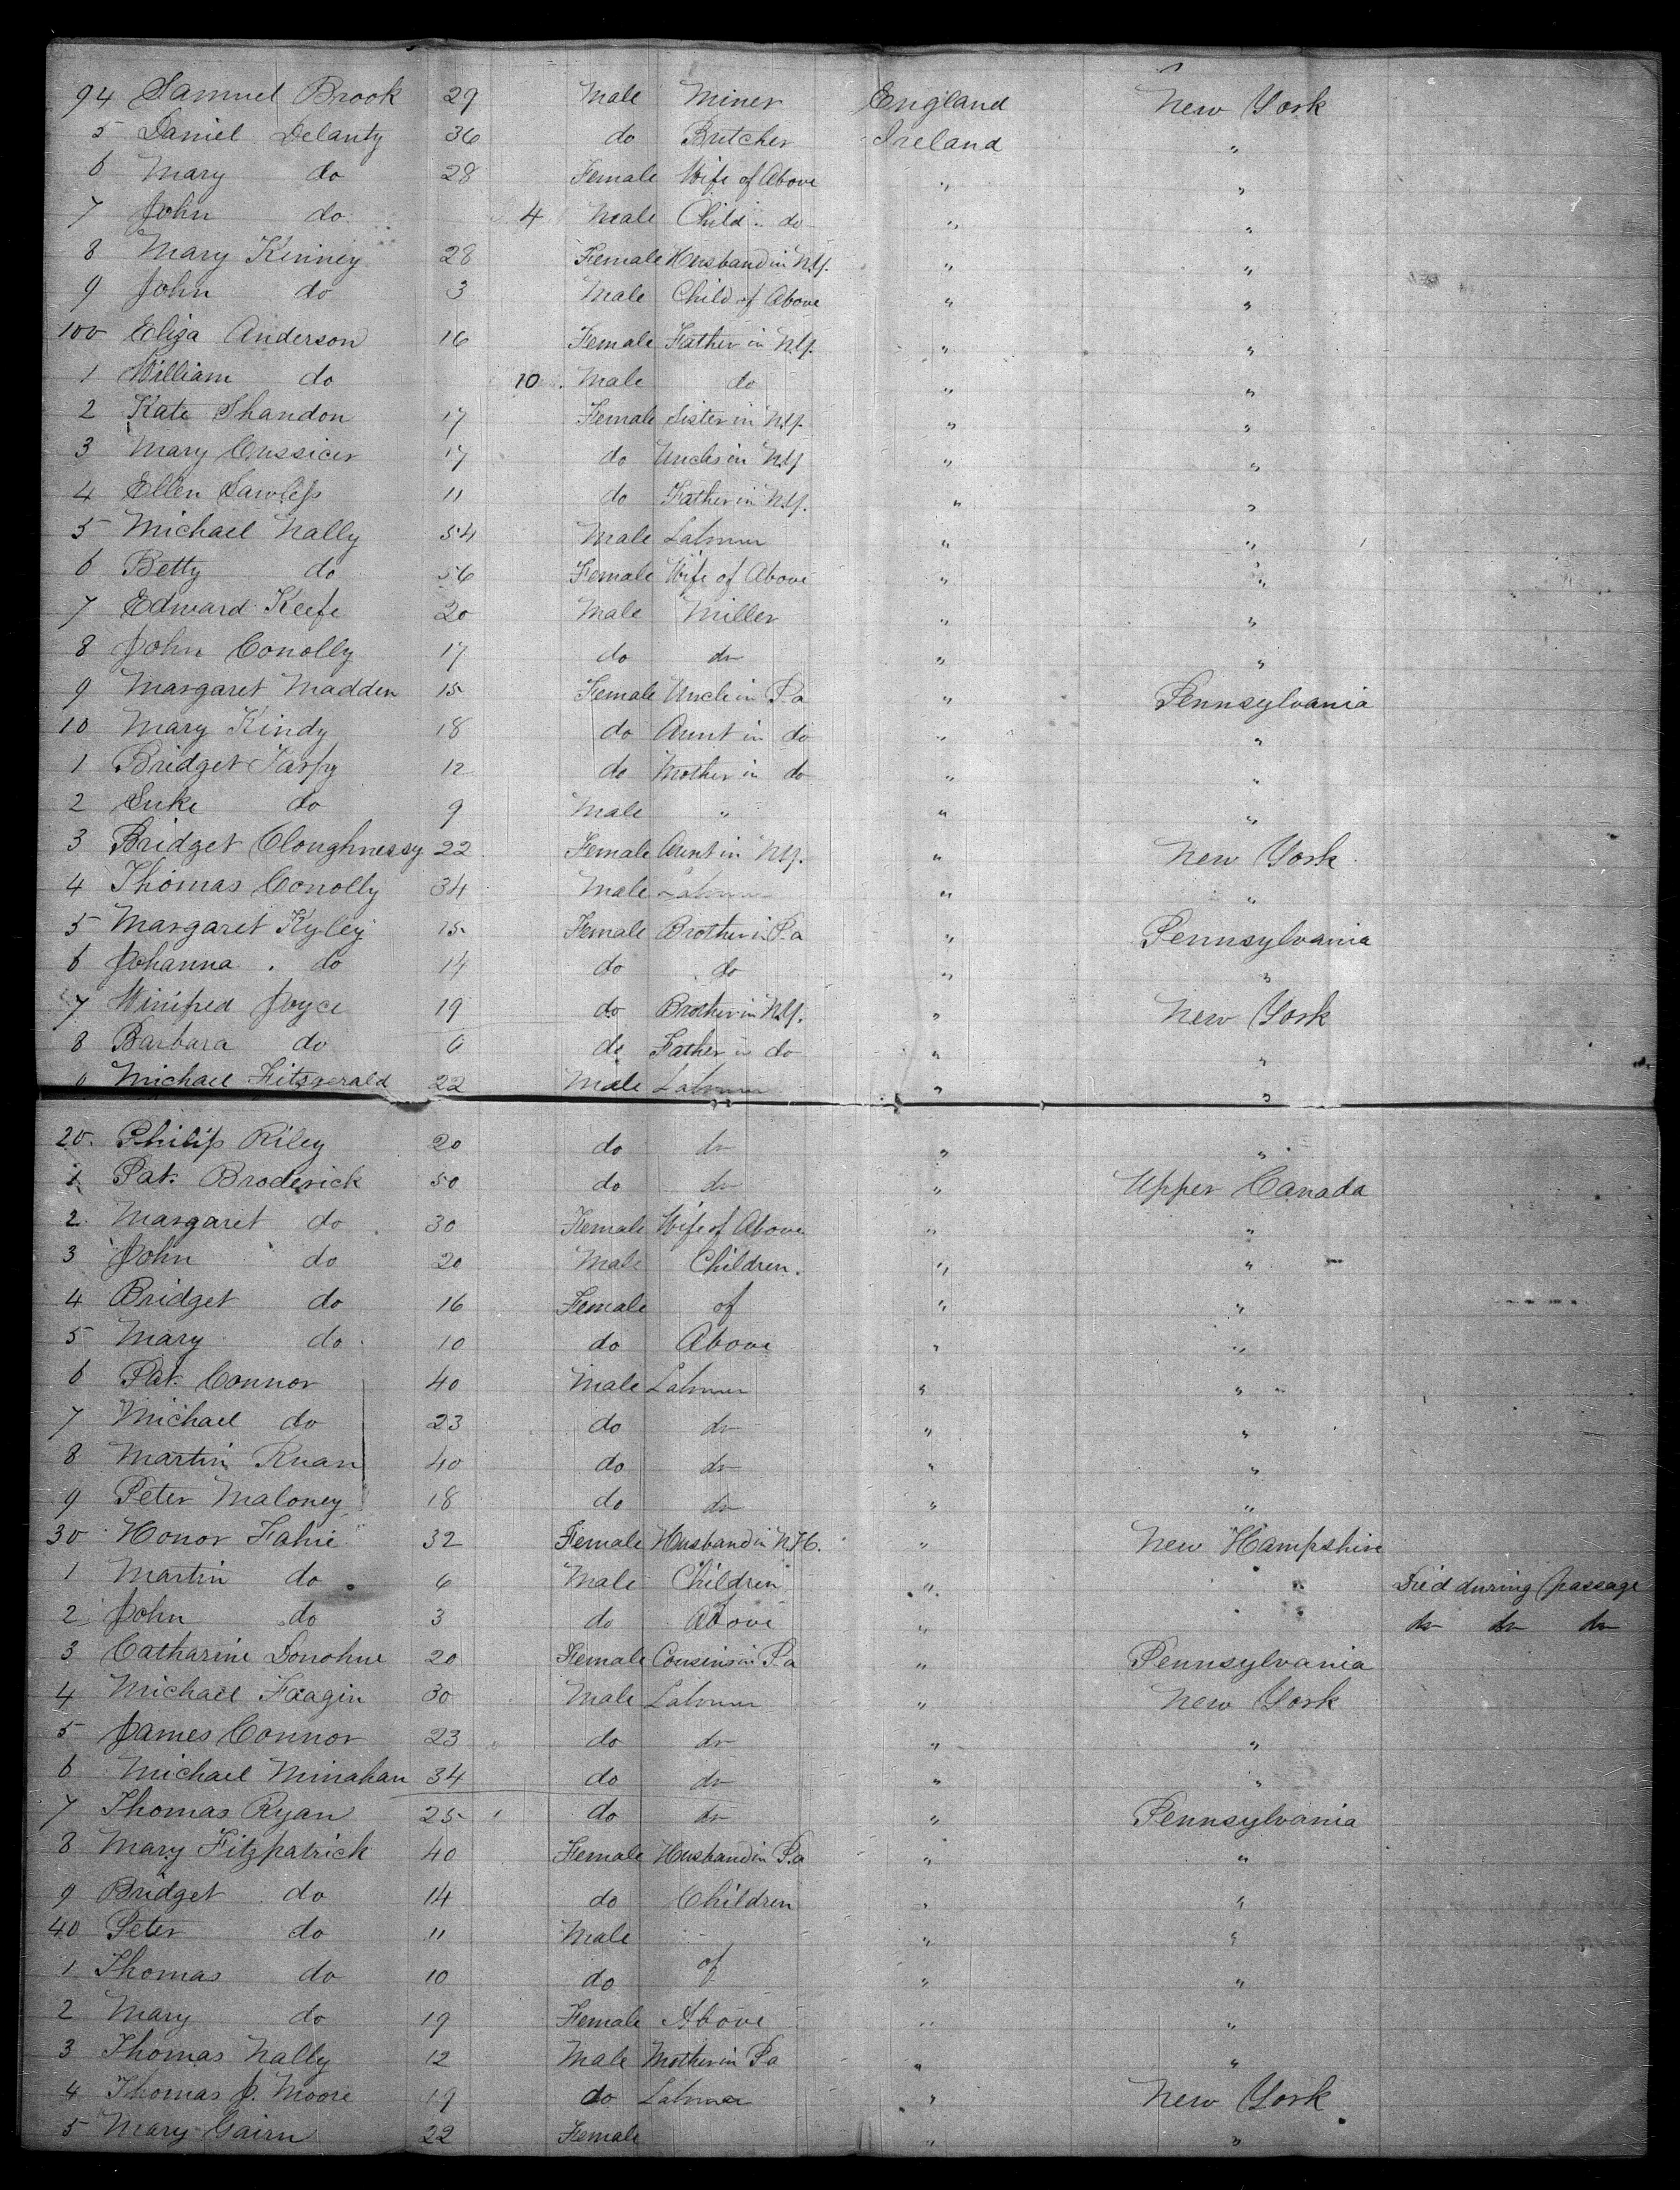 94 Samuel Brook 29 Male Miner England New York
5 Daniel Delanty 36 do Butcher Ireland "
6 Mary do 28 Female Wife of Above " "
7 John do 4 Male Child " do " "
8 Mary Kinney 28 Female Husband in N.Y. " "
9 John do 3 Male Child of Above " "
100 Eliza Anderson 16 Female Father in N.Y. " "
1 William do 10 Male do " "
2 Kate Shandon 17 Female Sister in N.Y. " "
3 Mary 17 do Uncles in N.Y. " "
4 Ellen Lawless 11 do Father in N.Y. " "
5 Michael Nally 54 Male Labourer " "
6 Betty do 56 Female Wife of Above " "
7 Edward Keefe 20 Male Miller " "
8 John Conolly 17 do do " "
9 Margaret Madden 15 Female Uncle in Pa " Pennsylvania
10 Mary Kindy 18 do Aunt in do " "
1 Bridget Tarpy 12 do Mother in do " "
2 Luke do 9 Male " " "
3 Bridget Cloughnessy 22 Female Aunt in N.Y. " New York
4 Thomas Conolly 34 Male Labourer " "
5 Margaret Kyley 15 Female Brother in Pa " Pennsylvania
6 Johanna do 14 do do " "
7 Winifred Joyce 19 do Brother in N.Y. " New York
8 Barbara do 6 do Father in do " "
Michael Fitzgerald 22 Male Labourer " "
20 Philip Riley 20 do do " "
1 Pat. Broderick 50 do do " Upper Canada
2 Margaret do 30 Female Wife of Above " "
3 John do 20 Male Children " "
4 Bridget do 16 Female of " "
5 Mary do 10 do Above " "
6 Pat. Connor 40 Male Labourer " "
7 Michael do 23 do do " "
8 Martin Ruan 40 do do " "
9 Peter Maloney 18 do do " "
30 Honor Fahie 32 Female Husband in N.H. " New Hampshire
1 Martin do 6 Male Children " " Died during passage
2 John do 3 do of Above " " do do do
3 Catharine Donohue 20 Female Cousins in Pa " Pennsylvania
4 Michael Feagin 30 Male Labourer " New York
5 James Connor 23 do do " "
6 Michael Minahan 34 do do " "
7 Thomas Ryan 25 do do " Pennsylvania
8 Mary Fitzpatrick 40 Female Husband in Pa " "
9 Bridget do 14 do Children " "
40 Peter do 11 Male " "
1 Thomas do 10 do of " "
2 Mary do 19 Female Above " "
3 Thomas Nally 12 Male Mother in Pa " "
4 Thomas J. Moore 19 do Labourer " New York
5 Mary Gairn 22 Female " "